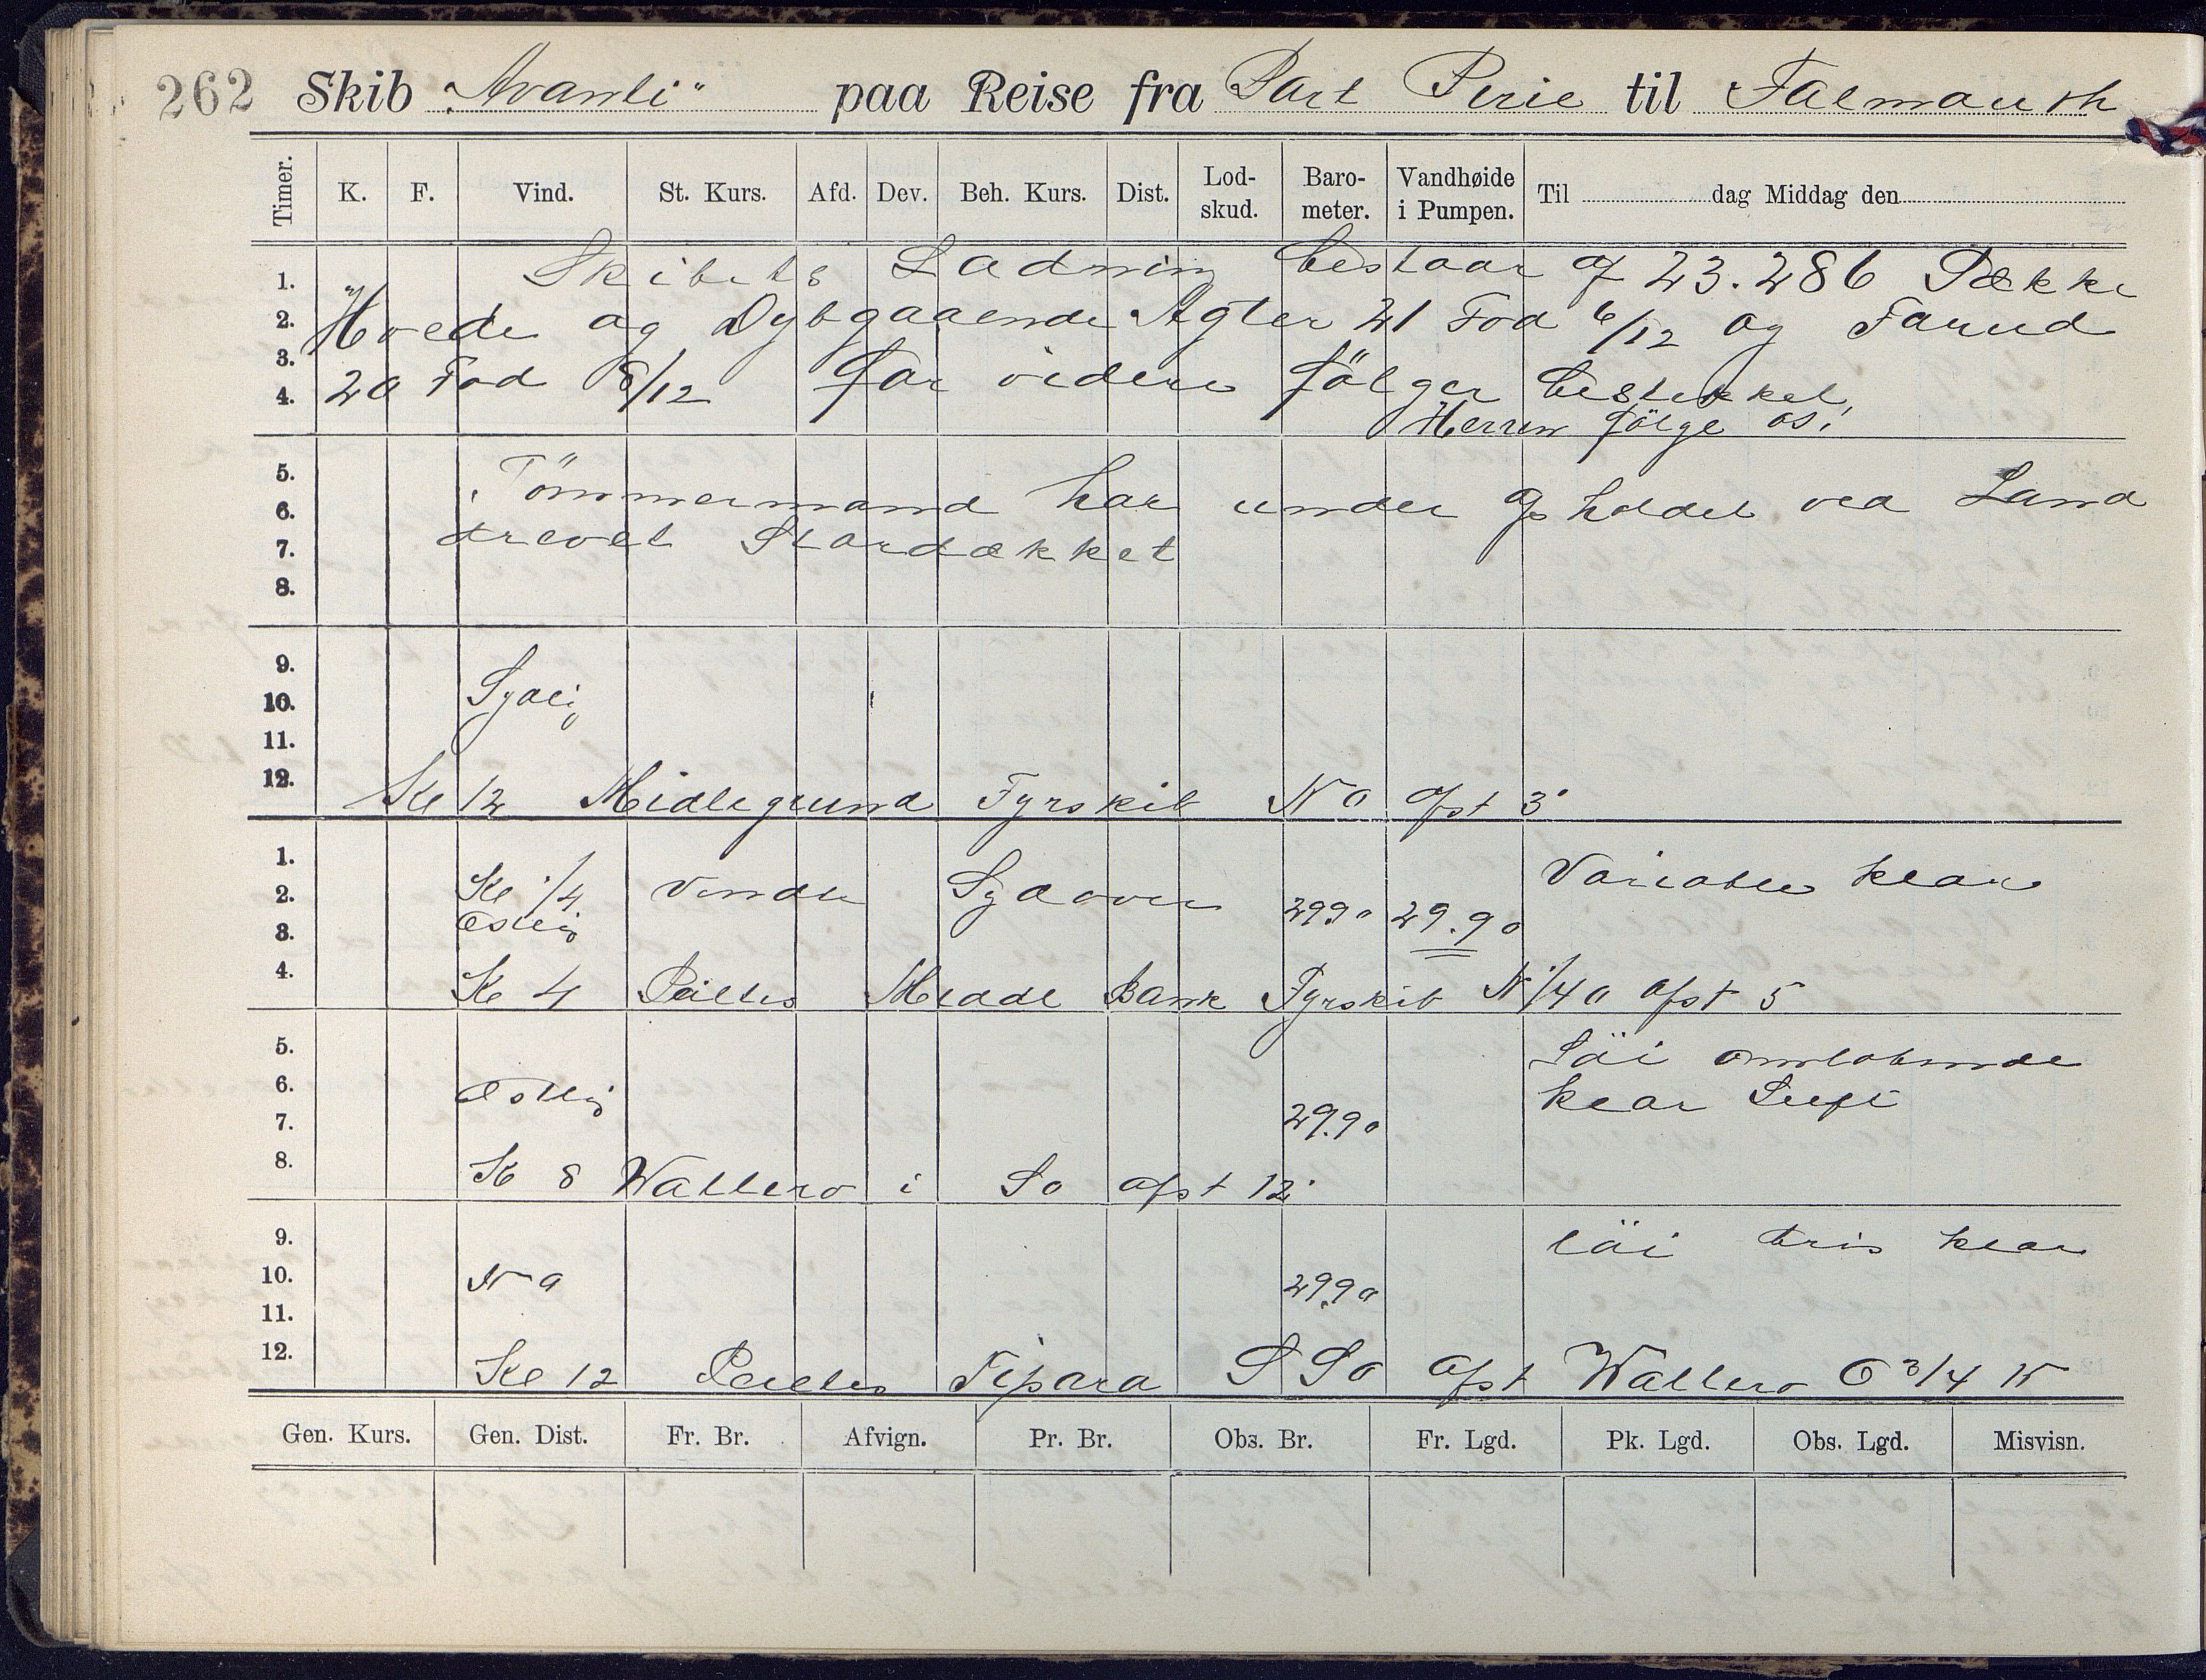 262 Skib „Avanti" paa Reise fra Port Pirie til Falmouth
Timer. K. F. Vind. St. Kurs. Afd. Dev. Beh. Kurs. Dist. Lod-skud. Baro-meter. Vandhøide i Pumpen. Til dag Middag den
1. Skibets Ladning bestaar af 23.286 Sække
2. Hvede og Dybgaaende Agter 21 Fod 6/12 og Forud
3.
4. 20 Fod 8/12 for videre fölger bestikket,
Herren fölge os!
5.
6. Tömmermand har under Opholdet ved Land
7. drevet Stordækket
8.
9.
10. Sydlig
11.
12. Kl 12 Midlegrund Fyrskib NO afst 3'
1. Variable klar
2. Kl 1/4 vendte Sydover 29.90 29.90
3. Østlig
4. Kl 4 Peiltes Middl Bank Fyrskib N 1/4 O afst 5
5. Löi omlobende
6. Østlig klar Luft
7. 29.90
8. Kl 8 Wallero i SO afst 12'
9. löi bris klar
10. NO 29.90
11.
12. Kl 12 Peiltes Tipara SSO afst Wallero O 3/4 N
Gen. Kurs. Gen. Dist. Fr. Br. Afvign. Pr. Br. Obs. Br. Fr. Lgd. Pk. Lgd. Obs. Lgd. Misvisn.